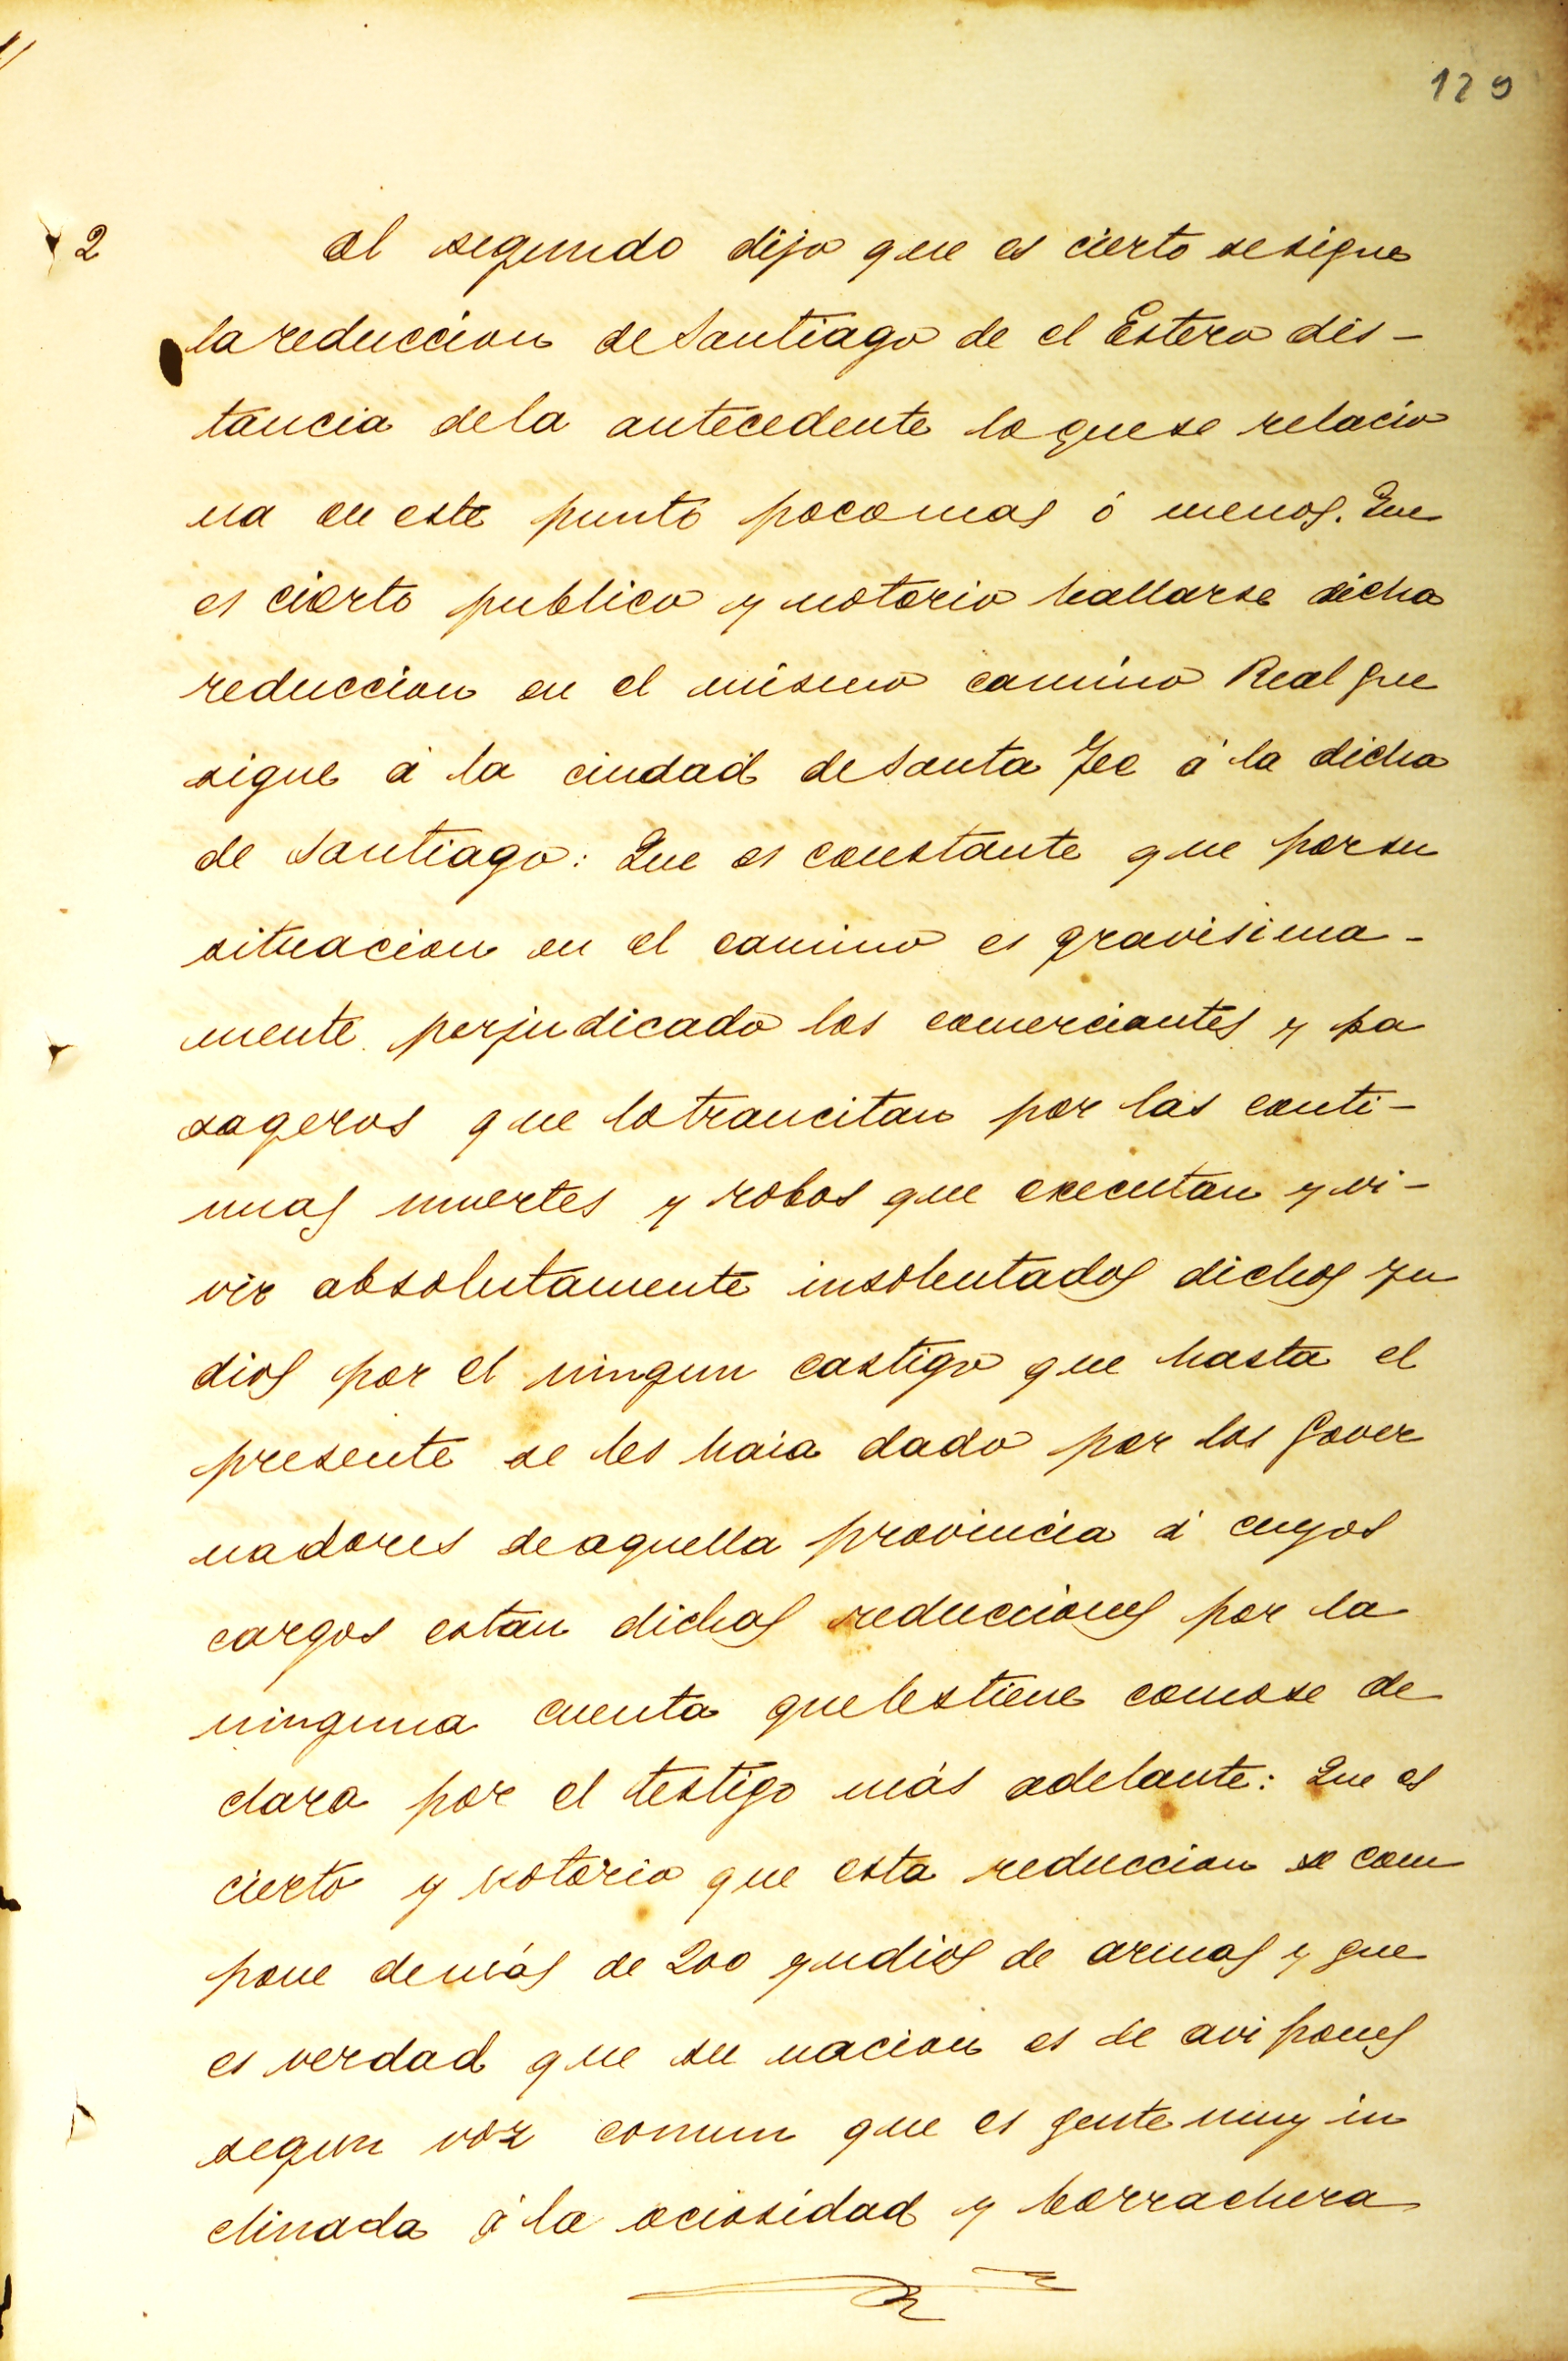 129
2 al segundo dijo que es cierto sesigue
lareduccion deSantiago de el Estero dis-
tancia dela antecedente loquese relacio
na en este punto pocomas ó menos. Que
es cierto publico y notorio hallarse dicha
reduccion en el mismo camino Real que
sigue á la ciudad deSanta Fee á la dicha
de Santiago: Que es constante que porsu
situacion en el camino es gravisima-
mente perjudicado los comerciantes y pa
sageros que lotrancitan por las conti-
nuas muertes y robos que executan y vi-
vir absolutamente insolentados dichos yn
dios por el ningun castigo que hasta el
presente se les haia dado por los Gover
nadores deaquella provincia á cuyos
cargos estan dichas reducciones por la
ninguna cuenta quelestiene comose de
clara por el testigo más adelante: Que es
cierto y notorio que esta reduccion se com
pone demás de 200 yndios de armas y que
es verdad que su nacion es de avipones
segun voz comun que es gente muy in
clinada á la ociosidad y borrachera